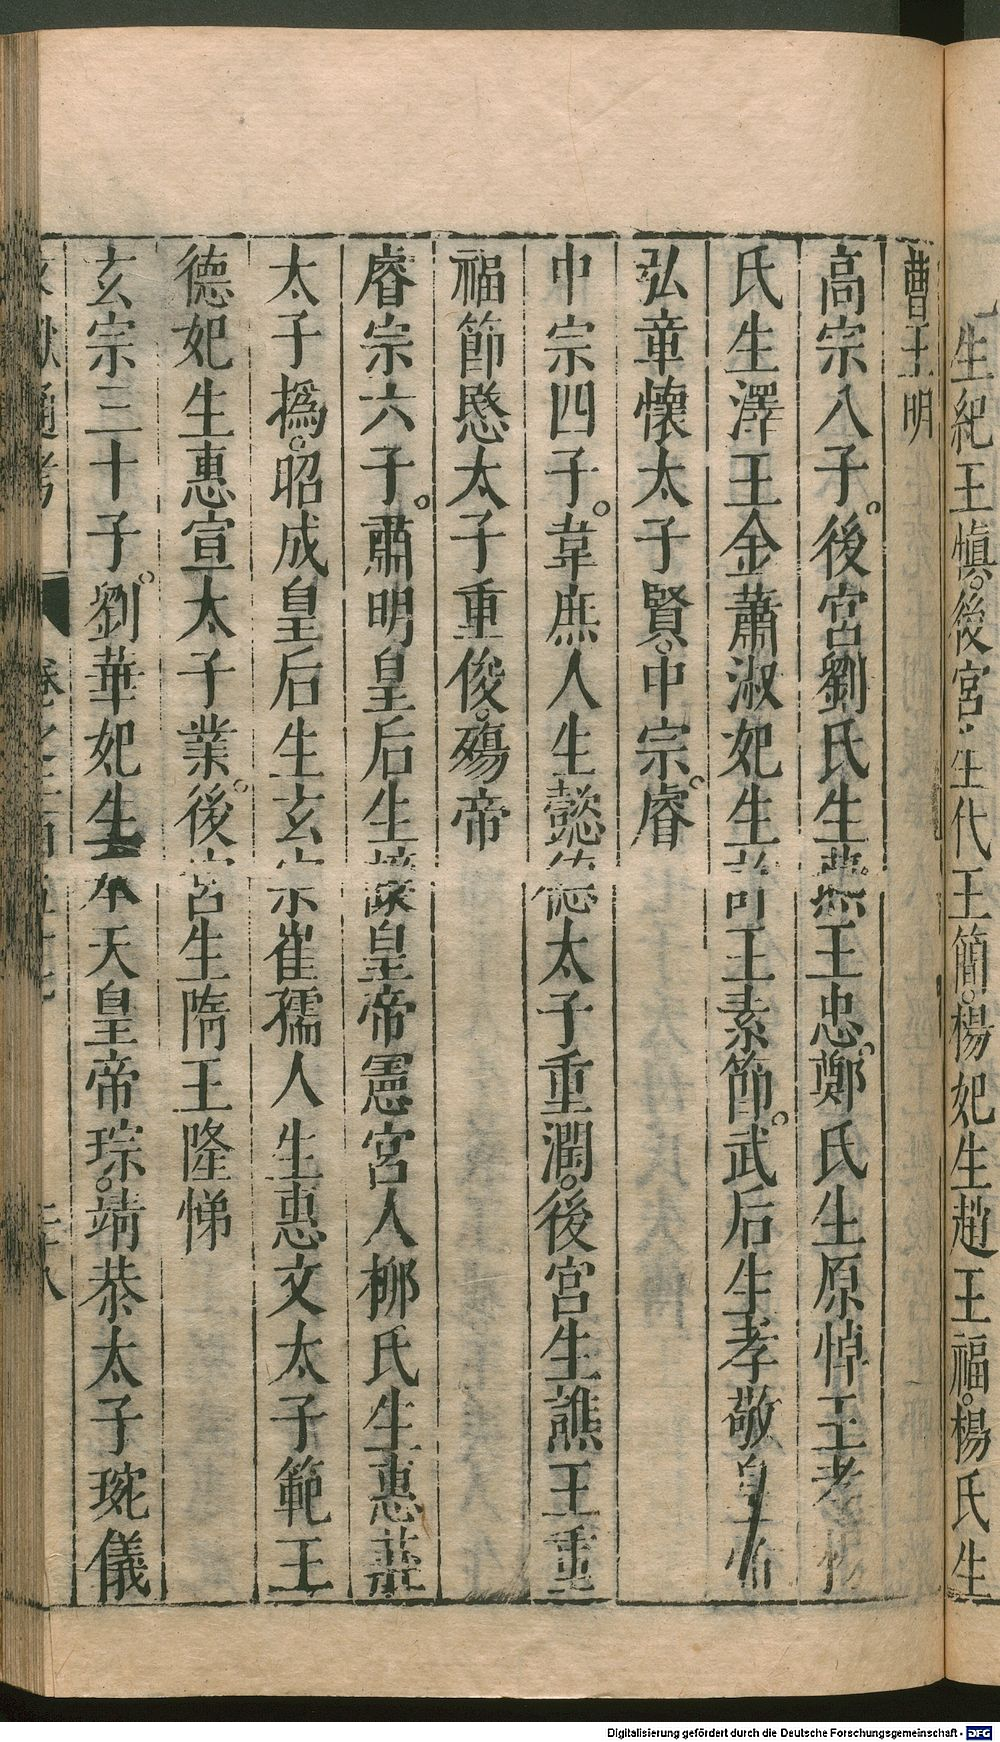 生紀王愼。後宮生代王簡。楊妃生趙王福。楊氏生
曹王明
高宗八子。後宮劉氏生燕王忠。鄭氏生原悼王孝
氏生澤王金蕭淑妃生許王素節。武后生孝敬皇帝
弘章懷太子賢。中宗。睿
中宗四子。韋庶人生懿德太子重潤。後宮生譙王重
福節愍太子重俊。殤帝
睿宗六子。肅明皇后生讓皇帝憲宮人柳氏生惠莊
太子撝。昭成皇后生玄宗崔孺人生惠文太子範王
德妃生惠宣太子業。後宮生隋王隆悌
玄宗三十子。劉華妃生奉天皇帝琮。靖恭太子琬儀
文獻通考 卷之二百五十七 二十八
Digitalisierung gefördert durch die Deutsche Forschungsgemeinschaft - DFG